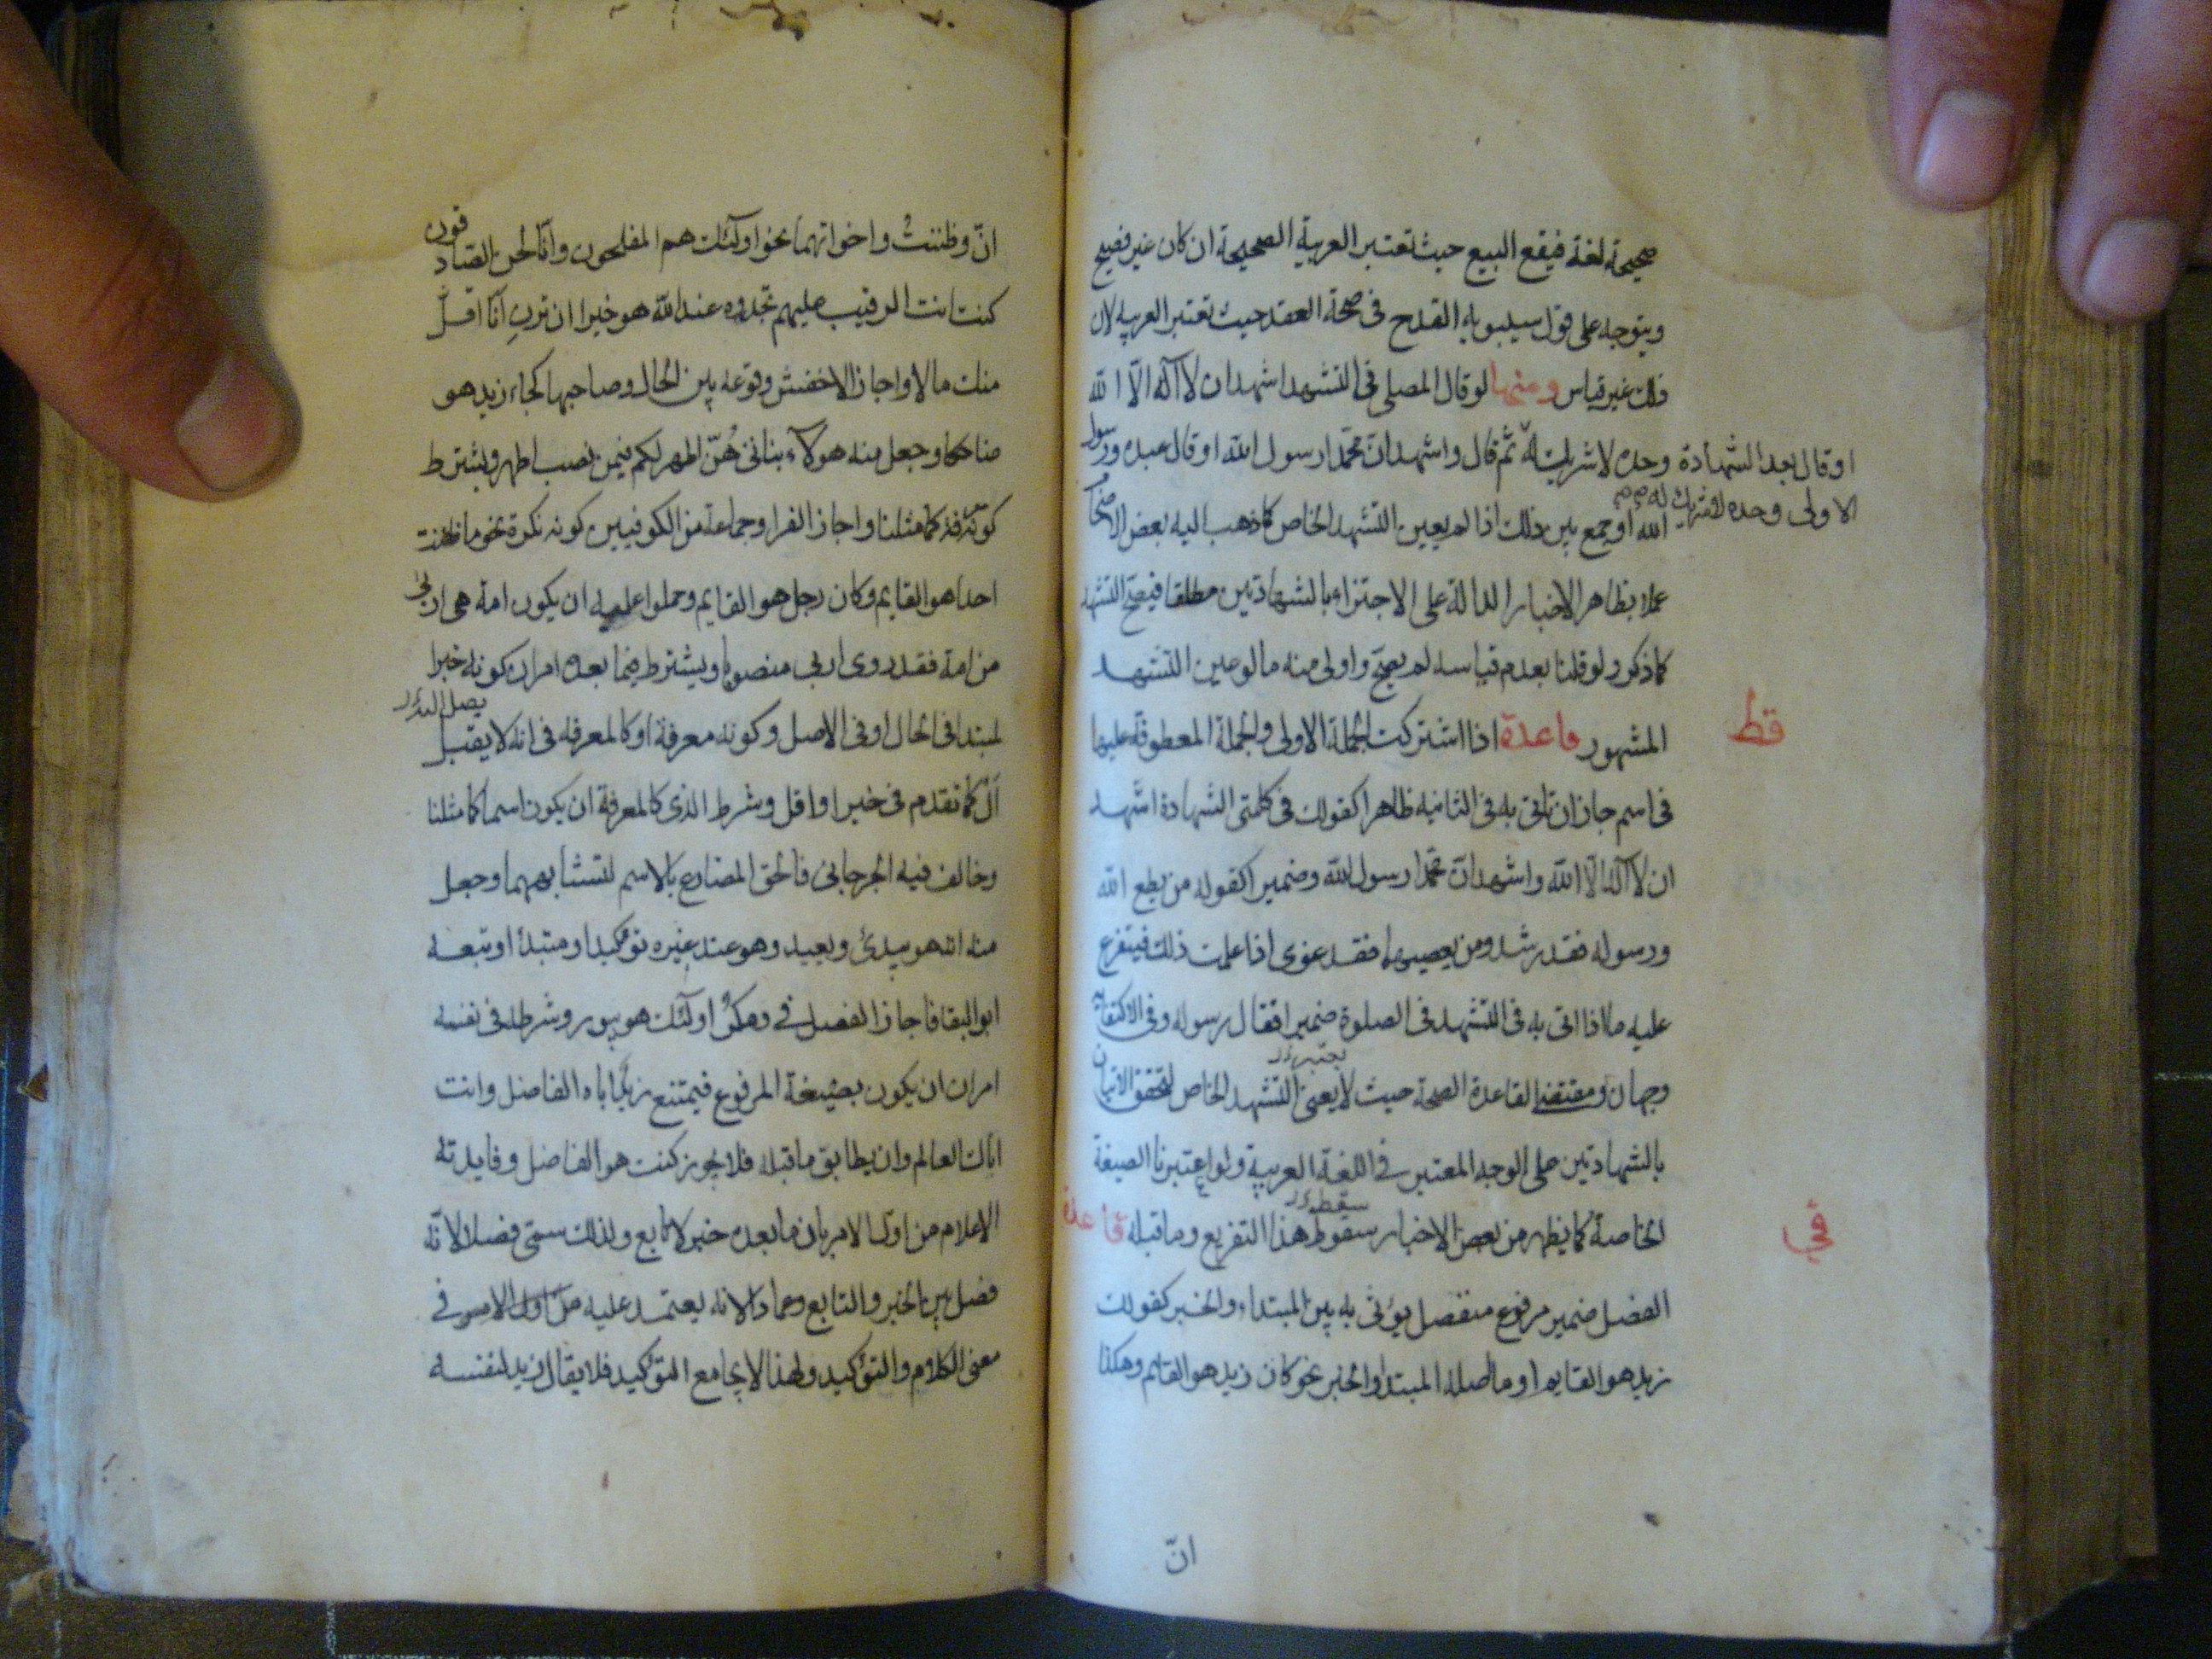 صحيحة لغة فيقع البيع حيث تعتبر العربية الصحيحة ان كان غير فصيح
ويتوجه على قول سيبويه القدح فى صحة العقد حيث تعتبر العربيه لان
ذلك غير قياس ومنها لو قال المصلى فى التشهد اشهد ان لا آله الّا الله
وحده لا شريك له ثم قال واشهد انّ محمّدا رسول الله او قال عبده ورسول
او قال بعد الشهادة
الاولى وحده لا شريك له صح
الله او جمع بين ذلك اذا لم يعين التشهد الخاص كما ذهب اليه بعض الاصحا
عملا بظاهر الاخبار الدالة على الاجتزاء بالشهادتين مطلقا فيصح التشهد
كما ذكر ولو قلنا بعدم قياسه لم يصحّ واولى منه ما لو عين التشهد
قط
المشهور قاعدة اذا اشتركت الجملة الاولى والجملة المعطوفة عليها
فى اسم جاز ان تاتى به فى الثانيه ظاهرا كقولك فى كلمتى الشهادة اشهد
ان لا آله الّا الله واشهد انّ محمّدا رسول الله وضميرا كقوله من يطع الله
ورسوله فقد رشد ومن يعصيهما فقد غوى اذا علمت ذلك فيتفرع
عليه ما اذا اتى به فى التشهد فى الصلوة ضميرا فقال رسوله وفى الاكتفاء به
وجهان ومقتضى القاعدة الصحة حيث لا يعين التشهد الخاص لتحقق الاتيان
بالشهادتين على الوجه المعتبر فى اللغة العربية ولو اعتبرنا الصيغة
الخاصة كما يظهر من بعض الاخبار سقوط هذا التفريع وما قبله قاعدة
قى
الفصل ضمير مرفوع منفصل يؤتى به بين المبتداء والخبر كقولك
زيد هو القايم او ما اصله المبتدا والخبر نحو كان زيد هو القايم وهكذا
انّ
انّ وظننتُ واخواتهما نحو اولئك هم المفلحون وانّا لنحن الصادقون
كنت انت الرقيب عليهم تجدوه عند الله هو خيرا ان ترنِ انا اقلّ
منك مالا واجاز الاخفش وقوعه بين الحال وصاحبها كجاء زيد هو
ضاحكا وجعل منه هولاء بناتى هُنّ اطهر لكم فيمن نصب اطهر ويشترط
كونه معرفة كما مثلنا واجاز الفرا وجماعة من الكوفيين كونه نكرة نحو ما ظننت
احدا هو القايم وكان رجل هو القايم وحملوا عليه ان يكون امة هى اربى
من امة فقدروى اربى منصوبا ويشترط فيما بعده امران كونه خبرا
لمبتدا فى الحال او فى الاصل وكونه معرفة او كالمعرفه فى انه لا يقبل
اَلْ كما تقدم فى خيرا واقل وشرط الذى كالمعرفة ان يكون اسما كما مثلنا
وخالف فيه الجرجانى فالحق المضارع بالاسم لتشابههما وجعل
منه انه هو يبدئ ويعيد وهو عند غيره توكيد او مبتدأ وتبعه
ابو البقا فاجاز الفصل فى ومكرُ اولئك هو يبور وشرطه فى نفسه
امران ان يكون بصيغة المرفوع فيمتنع زيد اياه الفاضل وانت
اياك العالم وان يطابق ما قبله فلا يجوز كنت هو الفاضل وفايدته
الاعلام من اول الامر بان ما بعده خبر لا تابع ولذلك سمّى فصلا لانّه
فصل بين الخبر والتابع وعمادا لانه يعتمد عليه من اول الامر فى
معنى الكلام والتوكيد ولهذا لا يجامع التوكيد فلا يقال زيد نفسه